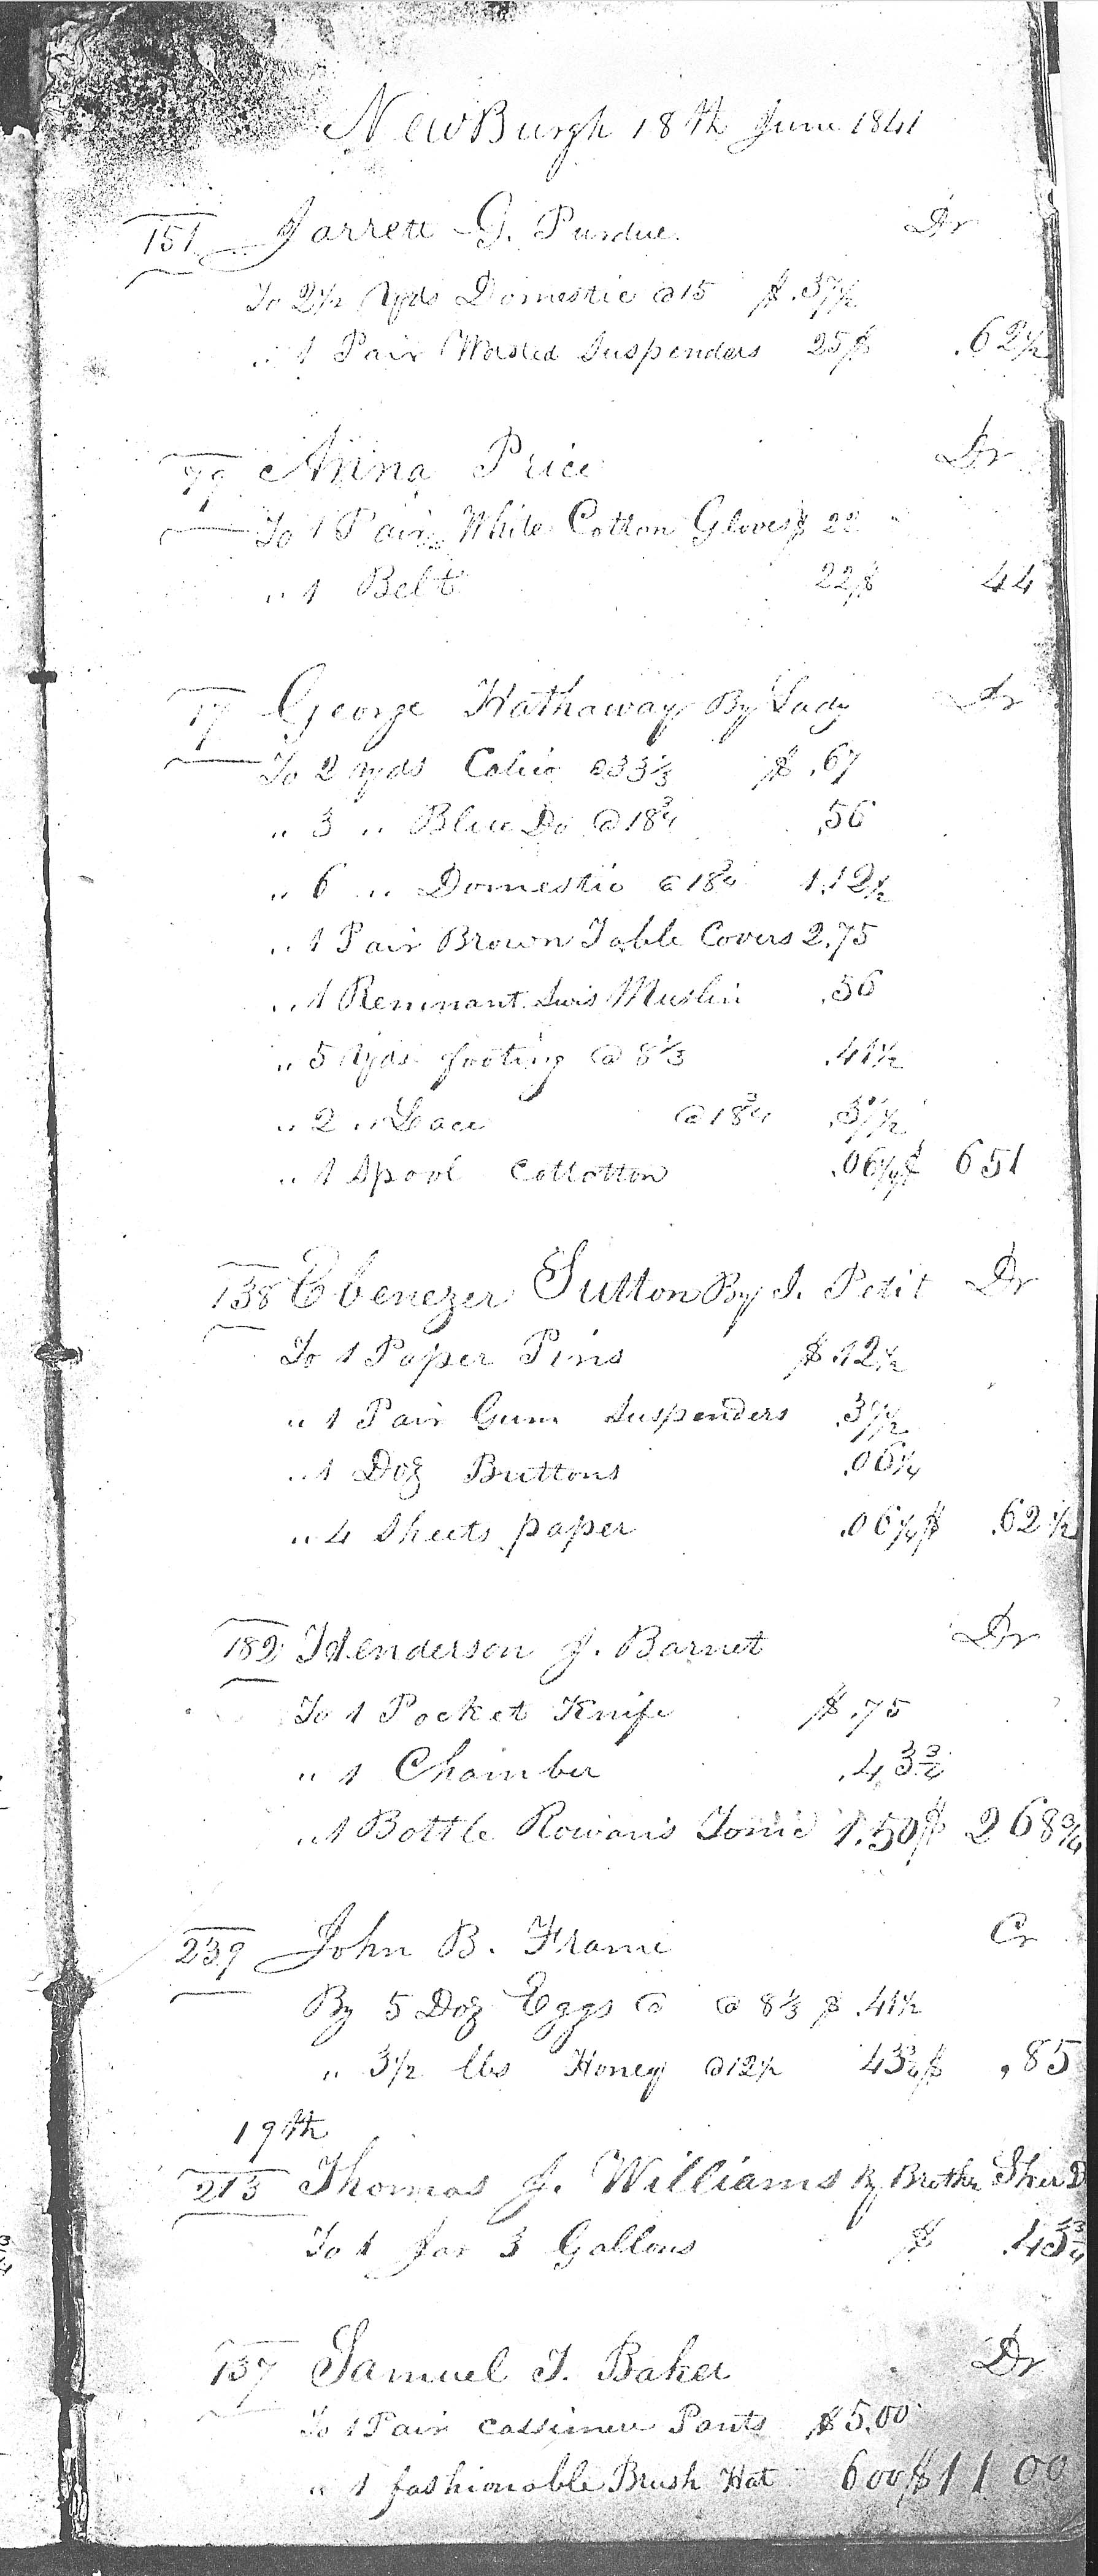 NewBurgh 18th June 1841
151 Jarrett G. Purdue Dr
To 2½ Yds Domestic @15 $ .37½
" 1 Pair Worsted Suspenders 25$ .62½
79 Anna Price Dr
To 1 Pair White Cotton Gloves $ 22
" 1 Belt 22$ 44
17 George Hathaway By Lady Dr
To 2 yds Calico @33⅓ $ .67
" 3 " Blue Do @18¾ .56
" 6 " Domestic @18¾ 1.12½
" 1 Pair Brown Table Covers 2.75
" 1 Remnant Swis Muslin .56
" 5 Yds footing @ 8⅓ .41½
" 2 " Lace @18¾ .37½
" 1 Spool Cottotton .06¼$ 651
138 Ebenezer Sutton By I. Petit Dr
To 1 Paper Pins $ .12½
" 1 Pair Gum Suspenders .37½
" 1 Doz Buttons .06¼
" 4 Sheets paper .06¼$ .62½
182 Henderson J. Barnet Dr
To 1 Pocket Knife $ .75
" 1 Chamber .43¾
" 1 Bottle Rowan's Tonic 1.50$ 268¾
239 John B. Frame Cr
By 5 Doz Eggs @ @ 8⅓ $ .41½
" 3½ lbs Honey @12½ 43¾$ .85
19th
213 Thomas J. Williams By Brother D
To 1 Jar 3 Gallons $ .43¾
137 Samuel T. Baker Dr
To 1 Pair cassimere Pants $5.00
" 1 fashionable Brush Hat 600$11 00